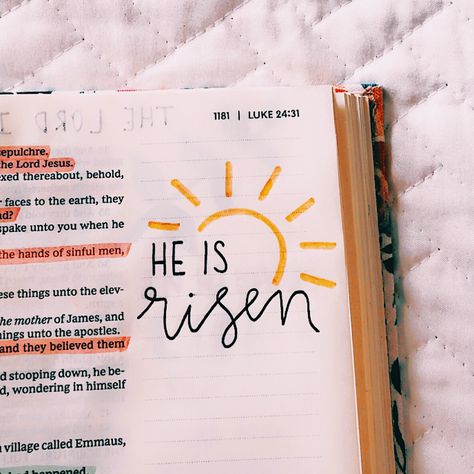 THE LORD I
1181 | LUKE 24:31
sepulchre.
the Lord Jesus.
exed thereabout, behold,
r faces to the earth, they
ad?
spake unto you when he
the hands of sinful men,
ese things unto the elev-
the mother of James, and
nings unto the apostles.
and they believed them
d stooping down, he be-
d, wondering in himself
village called Emmaus,
had happened.
HE IS
risen